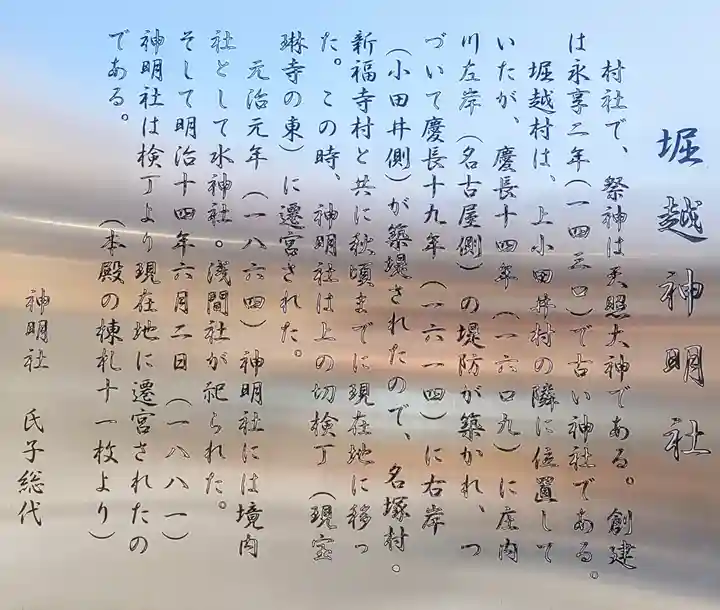 堀越神明社
村社で、祭神は天照大神である。創建
は永享二年（一四三〇）で古い神社である。
堀越村は、上小田井村の隣に位置して
いたが、慶長十四年（一六〇九）に庄内
川左岸（名古屋側）の堤防が築かれ、つ
づいて慶長十九年（一六一四）に右岸
（小田井側）が築堤されたので、名塚村。
新福寺村と共に秋頃までに現在地に移っ
た。この時、神明社は上の切検丁（現宝
琳寺の東）に遷宮された。
元治元年（一八六四）神明社には境内
社として水神社。浅間社が祀られた。
そして明治十四年六月二日（一八八一）
神明社は検丁より現在地に遷宮されたの
である。
（本殿の棟札十一枚より）
神明社　氏子総代